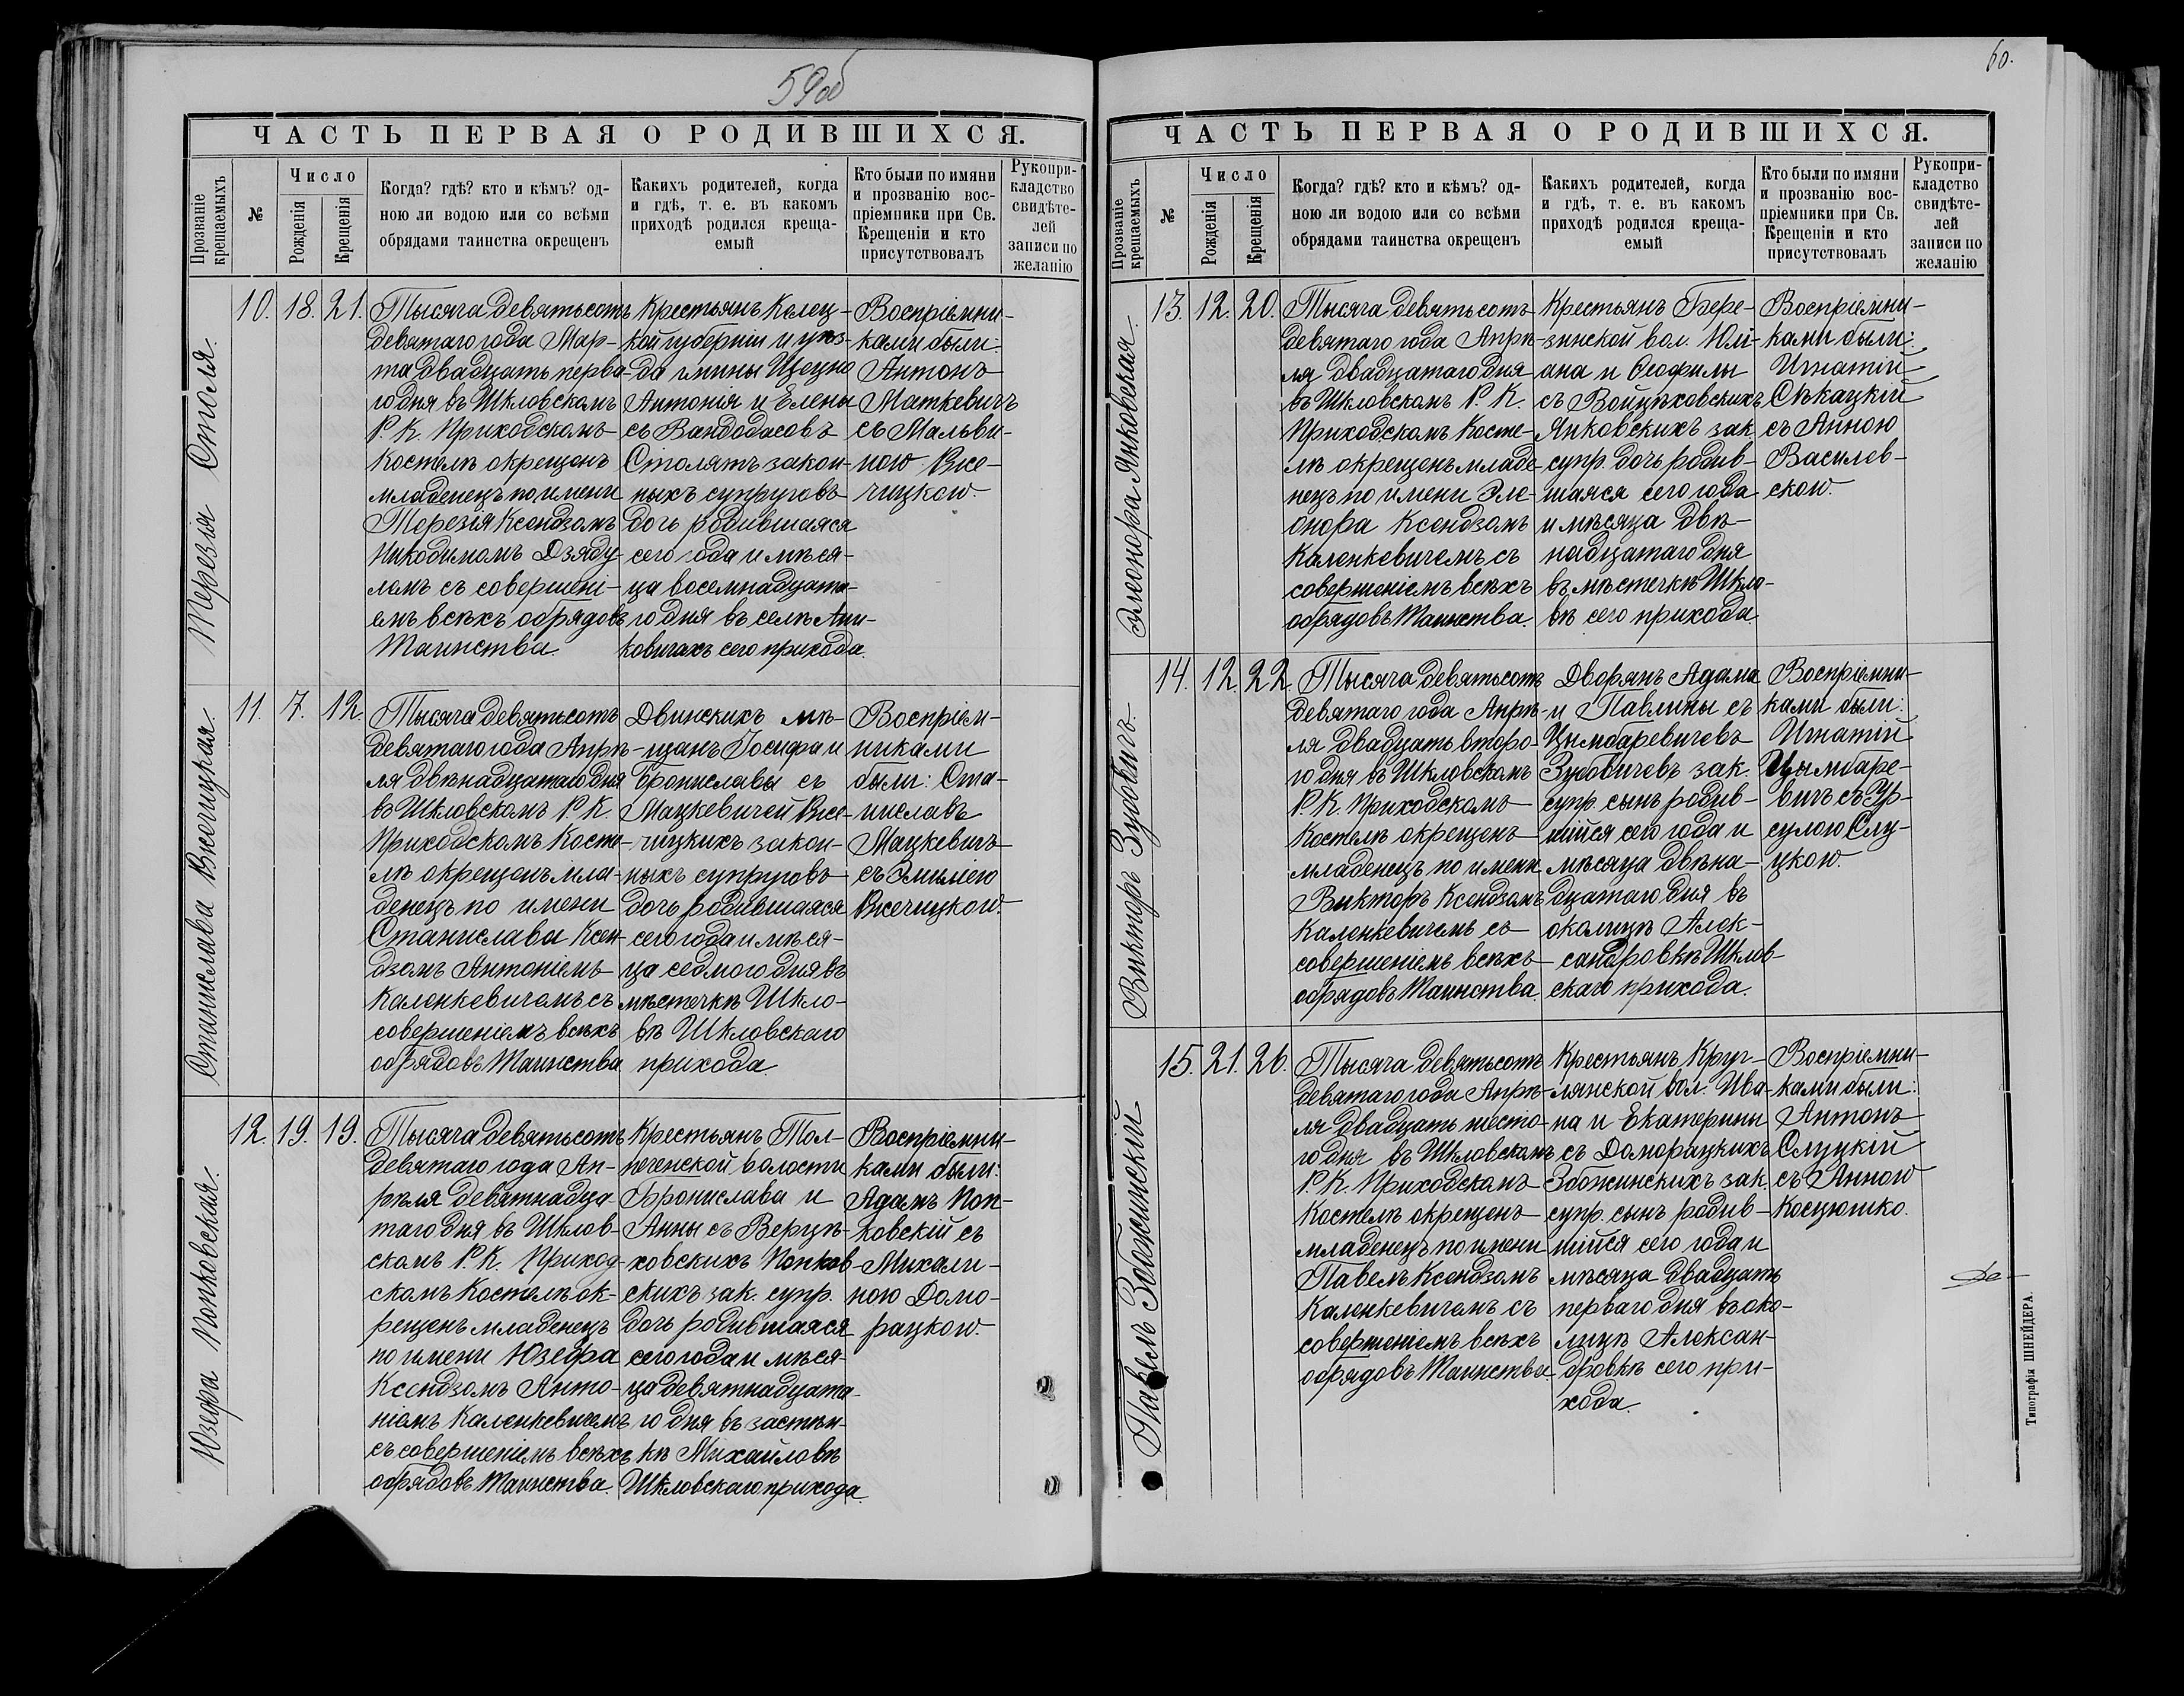 59об
ЧАСТЬ ПЕРВАЯ О РОДИВШИХСЯ.
Прозваніе крещаемыхъ
№
Число
Рожденія
Крещенія
Когда? гдѣ? кто и кѣмъ? од-
ною ли водою или со всѣми
обрядами таинства окрещенъ
Какихъ родителей, когда
и гдѣ, т. е. въ какомъ
приходѣ родился креща-
емый
Кто были по имяни
и прозванію вос-
пріемники при Св.
Крещеніи и кто
присутствовалъ
Рукопри-
кладство
свидѣте-
лей
записи по
желанію
Терезья Столя.
10. 18. 21.
Тысяча девятьсотъ
девятаго года Мар-
та двадцать перва-
го дня въ Шкловскомъ
Р. К. Приходскомъ
Костелѣ окрещенъ
младенецъ по имени
Терезія Ксендзомъ
Никодимомъ Дзяду-
ломъ съ совершені-
емъ всѣхъ обрядовъ
Таинства.
Крестьянъ Келец-
кой губерніи и уѣз-
да гмины
Антонія и Елены
съ Вандодасовъ
Столятъ закон-
ныхъ супруговъ
дочь родившаяся
сего года и мѣся-
ца восемнадцата-
го дня въ селѣ Ани-
ковичахъ сего прихода.
Воспріемни-
ками были:
Антонъ
Маткевичъ
съ Мальви-
ною Вже-
чицкою.
Станислава Вжечицкая.
11. 7. 12.
Тысяча девятьсотъ
девятаго года Апрѣ-
ля двѣнадцатаго дня
въ Шкловскомъ Р. К.
Приходскомъ Косте-
лѣ окрещенъ мла-
денецъ по имени
Станислава Ксен-
дзомъ Антоніемъ
Каленкевичемъ съ
совершеніемъ всѣхъ
обрядовъ Таинства
Двинскихъ мѣ-
щанъ Іосифа и
Брониславы съ
Мацкевичей Вже-
чицкихъ закон-
ныхъ супруговъ
дочь родившаяся
сего года и мѣся-
ца седмого дня въ
мѣстечкѣ Шкло-
вѣ Шкловскаго
прихода.
Воспріем-
никами
были: Ста-
ниславъ
Мацкевичъ
съ Эмиліею
Вжечицкою.
Юзефа Попковская.
12. 19. 19.
Тысяча девятьсотъ
девятаго года Ап-
рѣля девятнадца
таго дня въ Шклов-
скомъ Р. К. Приход-
скомъ Костелѣ ок-
рещенъ младенецъ
по имени Юзефа
Ксендзомъ Анто-
ніемъ Каленкевичемъ
съ совершеніемъ всѣхъ
обрядовъ Таинства.
Крестьянъ Тол-
печенской волости
Бронислава и
Анны съ Верцѣ-
ховскихъ Попков-
скихъ зак. супр.
дочь родившаяся
сего года и мѣся-
ца девятнадцата-
го дня въ застѣн-
кѣ Михайловѣ
Шкловскаго прихода.
Воспріемни-
ками были:
Адамъ Поп-
ковскій съ
Михали-
ною Домо-
рацкою.
60.
ЧАСТЬ ПЕРВАЯ О РОДИВШИХСЯ.
Прозваніе крещаемыхъ
№
Число
Рожденія
Крещенія
Когда? гдѣ? кто и кѣмъ? од-
ною ли водою или со всѣми
обрядами таинства окрещенъ
Какихъ родителей, когда
и гдѣ, т. е. въ какомъ
приходѣ родился креща-
емый
Кто были по имяни
и прозванію вос-
пріемники при Св.
Крещеніи и кто
присутствовалъ
Рукопри-
кладство
свидѣте-
лей
записи по
желанію
Элеонора Янковская.
13. 12. 20.
Тысяча девятьсотъ
девятаго года Апрѣ-
ля двадцатаго дня
въ Шкловскомъ Р. К.
Приходскомъ Косте-
лѣ окрещенъ младе-
нецъ по имени Эле-
онора Ксендзомъ
Каленкевичемъ съ
совершеніемъ всѣхъ
обрядовъ Таинства.
Крестьянъ Бере-
зинской вол. Юлі-
ана и Ѳеофилы
съ Войцѣховскихъ
Янковскихъ зак.
супр. дочь родив-
шаяся сего года
и мѣсяца двѣ-
надцатаго дня
въ мѣстечкѣ Шкло-
вѣ сего прихода.
Воспріемни-
ками были:
Игнатій
Сѣкацкій
съ Анною
Василев-
скою.
Викторъ Зубовичъ.
14. 12. 22.
Тысяча девятьсотъ
девятаго года Апрѣ-
ля двадцать второ-
го дня въ Шкловскомъ
Р. К. Приходскомъ
Костелѣ окрещенъ
младенецъ по имени
Викторъ Ксендзомъ
Каленкевичемъ съ
совершеніемъ всѣхъ
обрядовъ Таинства.
Дворянъ Адама
и Павлины съ
Цимбаревичевъ
Зубовичевъ зак.
супр. сынъ родив-
шійся сего года и
мѣсяца двѣна-
дцатаго дня въ
околицѣ Алек-
сандровкѣ Шклов-
скаго прихода.
Воспріемни-
ками были:
Игнатій
Цымбаре-
вичъ съ Ур-
сулою Слу-
цкою.
Павелъ Збожинскій
15. 21. 26.
Тысяча девятьсотъ
девятаго года Апрѣ-
ля двадцать шесто-
го дня въ Шкловскомъ
Р. К. Приходскомъ
Костелѣ окрещенъ
младенецъ по имени
Павелъ Ксендзомъ
Каленкевичемъ съ
совершеніемъ всѣхъ
обрядовъ Таинства.
Крестьянъ Круг-
лянской вол. Ива-
на и Екатерины
съ Доморацкихъ
Збожинскихъ зак.
супр. сынъ родив-
шійся сего года и
мѣсяца двадцать
перваго дня въ око-
лицѣ Алексан-
дровкѣ сего при-
хода.
Воспріемни-
ками были:
Антонъ
Слуцкій
съ Анною
Косцюшко.
Типографія ШНЕЙДЕРА.